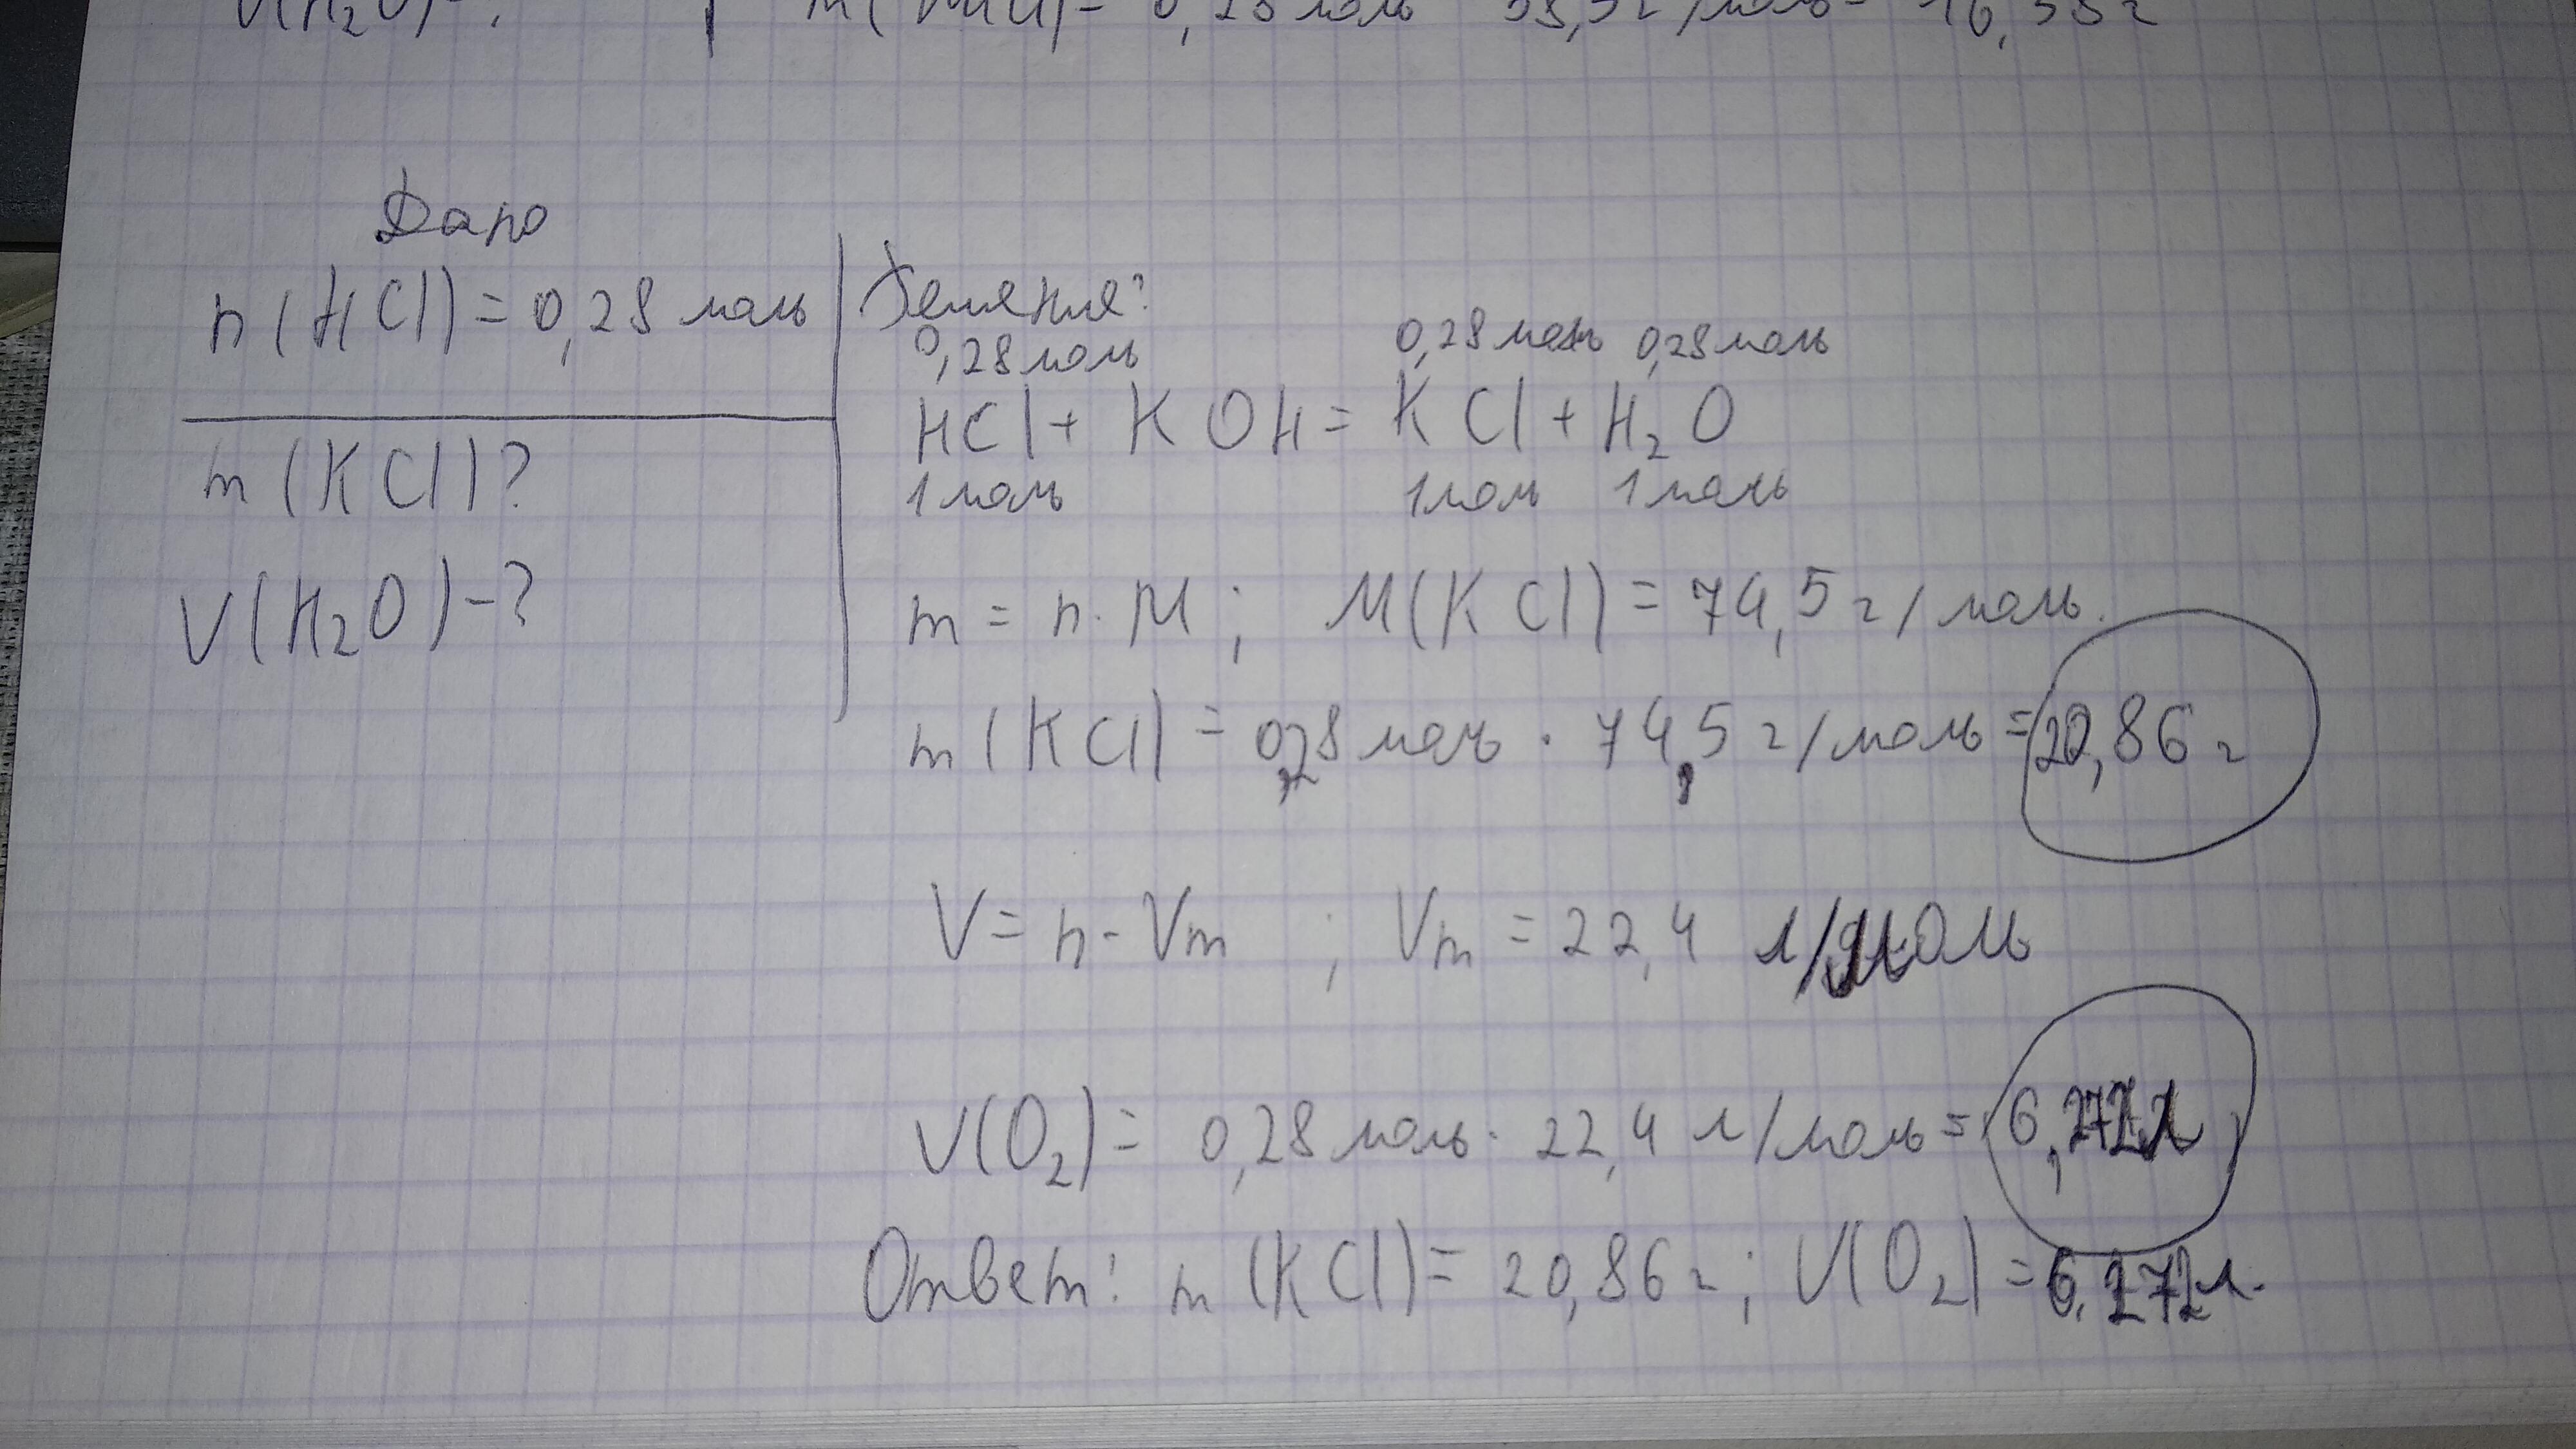 V(H₂O)-?
m(NaCl)= 0,28 моль 58,5г/моль= 16,38г
Дано
n(HCl)=0,28 моль
m(KCl)?
V(H₂O)-?
Решение:
0,28 моль 0,28 моль 0,28 моль
HCl + KOH = KCl + H₂O
1 моль 1 моль 1 моль
m = n · M; M(KCl) = 74,5 г/моль.
m(KCl) = 0,28 моль · 74,5 г/моль = 20,86 г
V = n · Vm ; Vm = 22,4 л/моль
V(O₂) = 0,28 моль · 22,4 л/моль = 6,272л
Ответ: m(KCl) = 20,86 г; V(O₂) = 6,272л.